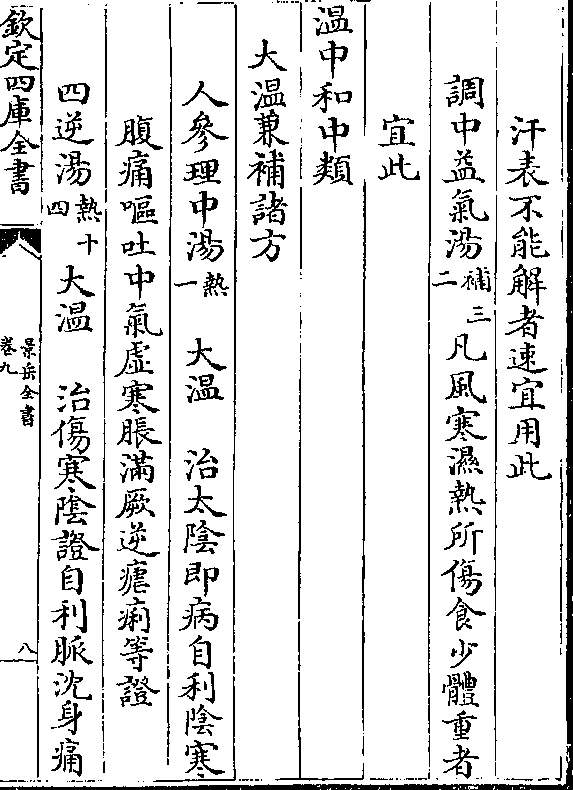 汗表不能解者速宜用此
調中益氣湯補三二凡風寒濕熱所傷食少體重者
宜此
溫中和中類
大溫兼補諸方
人參理中湯熱一 大溫 治太陰即病自利陰寒
腹痛嘔吐中氣虛寒脹滿厥逆瘧痢等證
四逆湯熱十四 大溫 治傷寒陰證自利脈沈身痛
欽定四庫全書
景岳全書
卷九
八